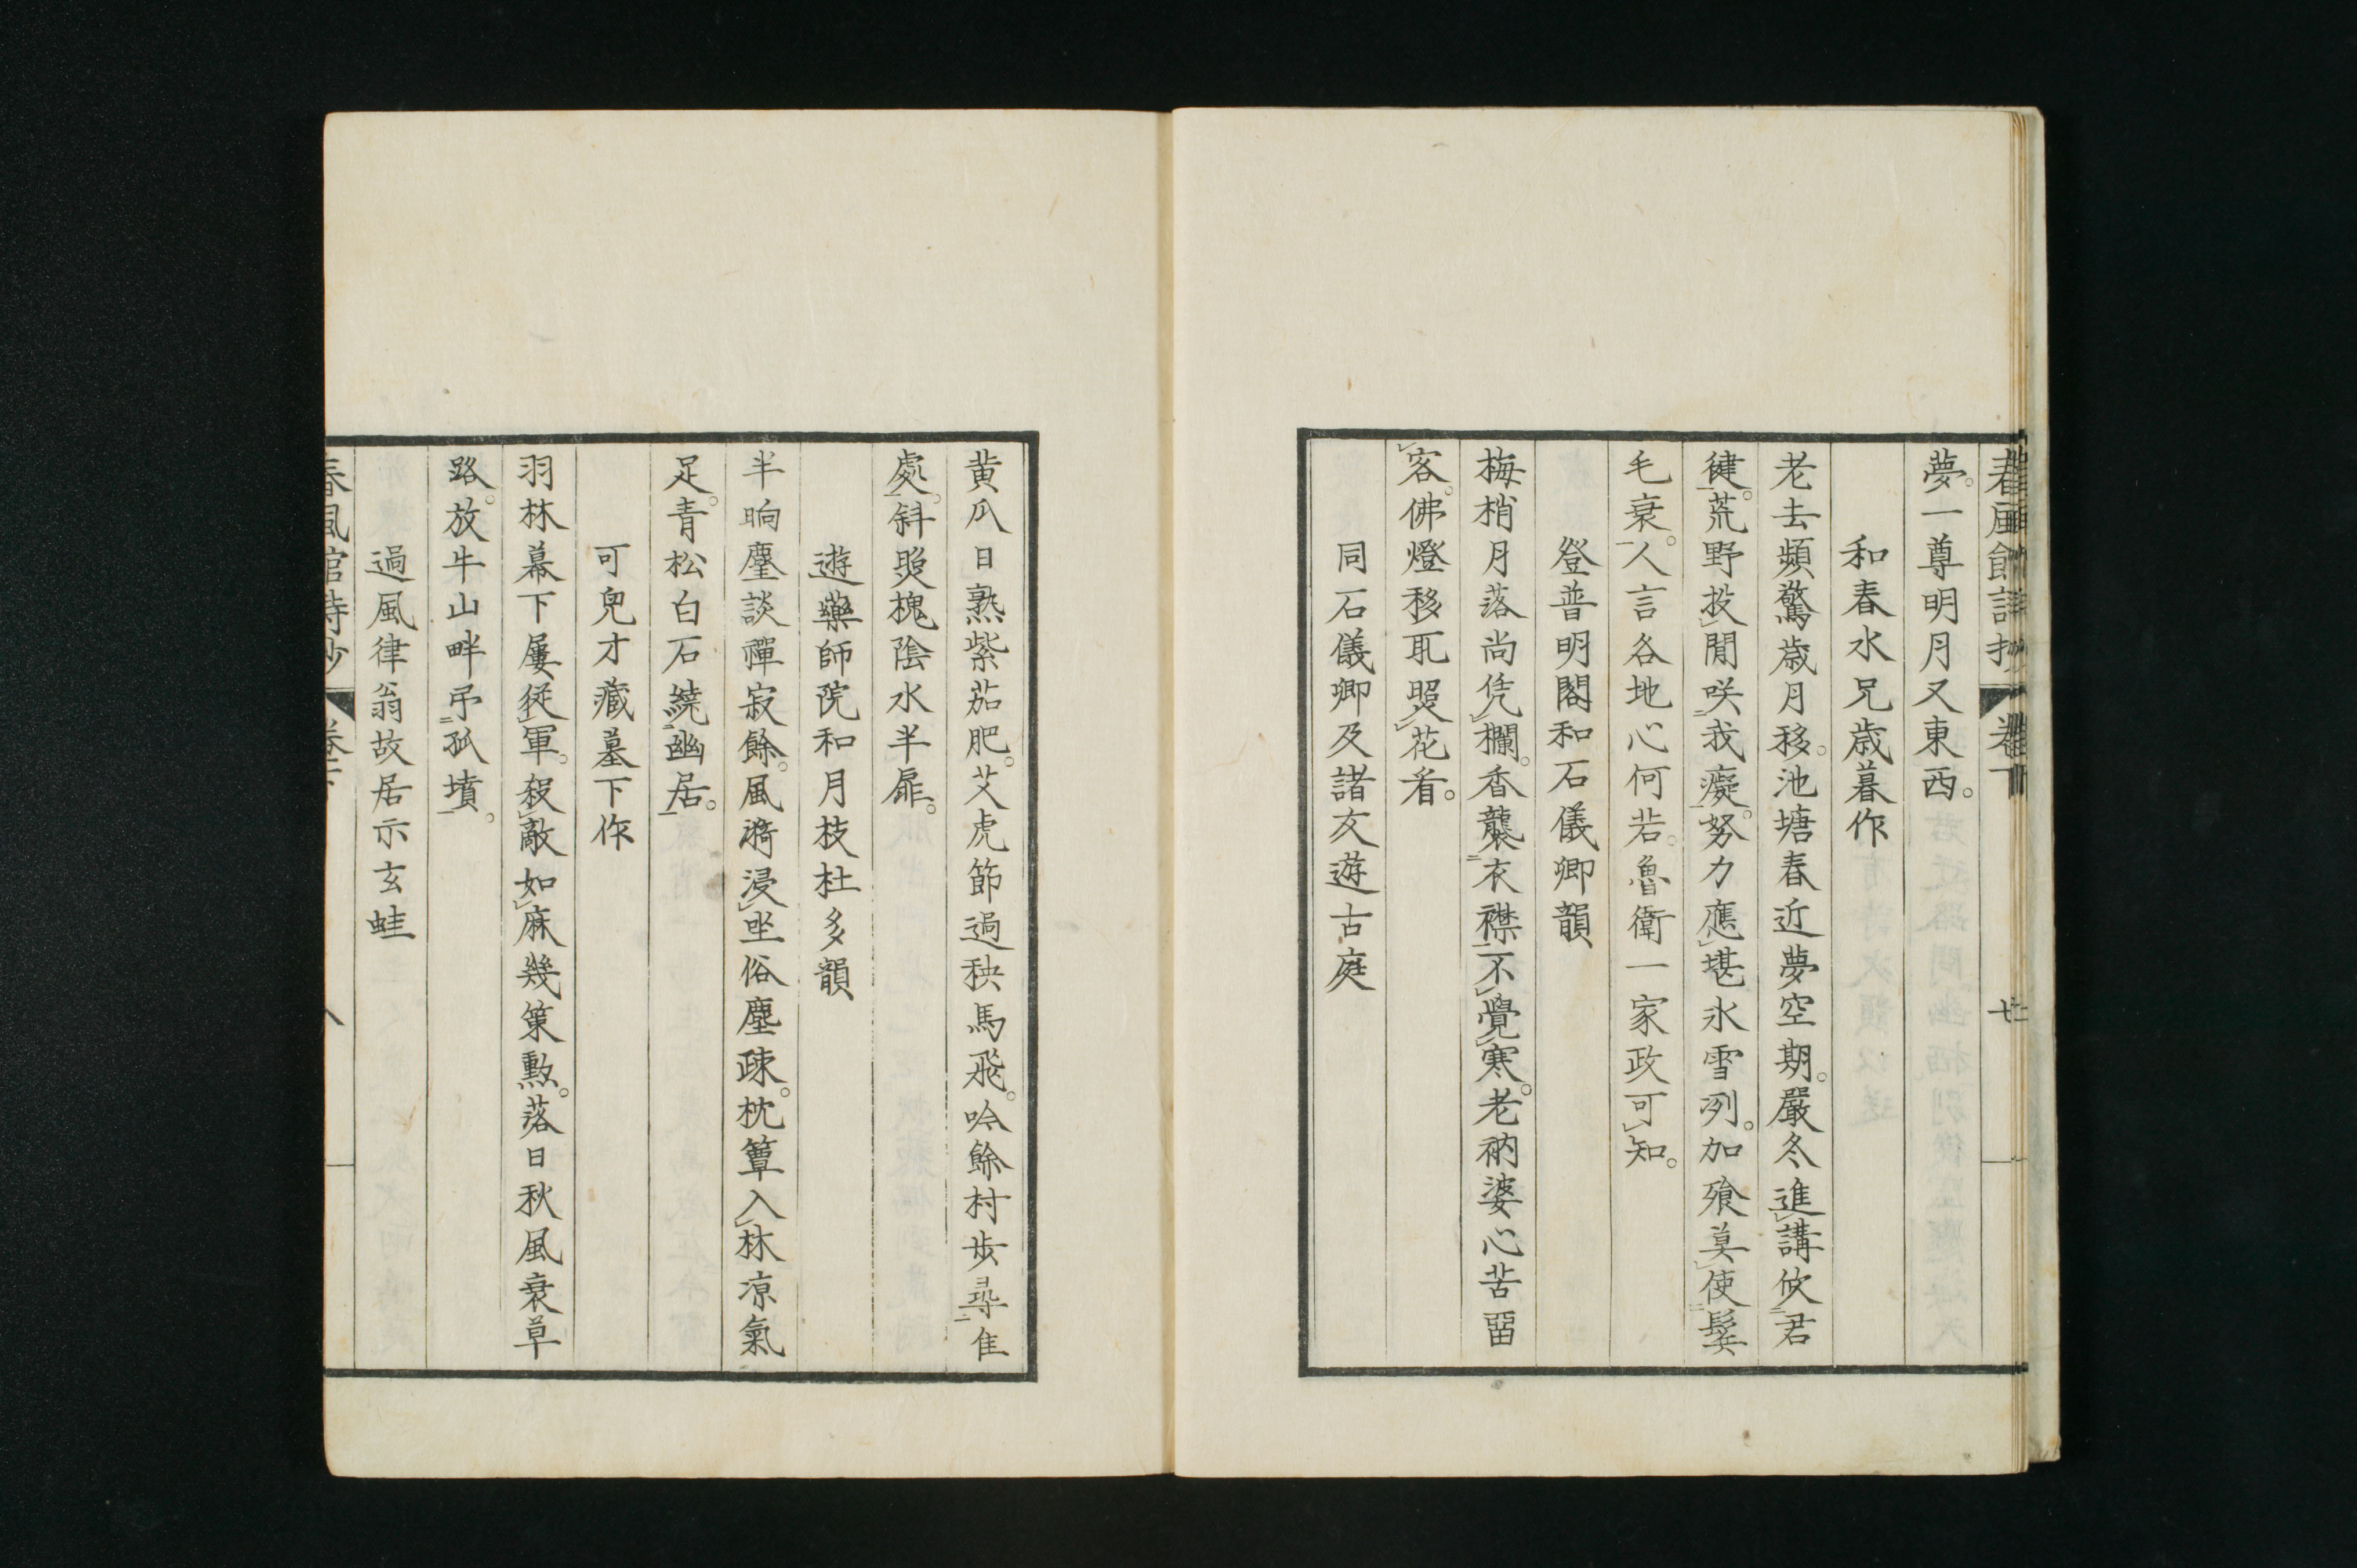 春風館詩抄 卷下
夢。一尊明月又東西。
和春水兄歳暮作
老去頻驚歳月移。池塘春近夢空期。嚴冬進講攸君
健。荒野投閒咲我癡。努力應堪氷雪冽。加飱莫使鬂
毛衰。人言各地心何若。魯衛一家政可知。
登普明閣和石儀卿韻
梅梢月落尚凭欄。香襲衣襟不覺寒。老衲婆心苦畱
客。佛燈移取照花看。
同石儀卿及諸友遊古庭
黄瓜日熟紫茄肥。艾虎節過秧馬飛。吟餘村步尋隹
處。斜照槐陰水半扉。
遊藥師院和月枝杜多韻
半晌麈談禪寂餘。風漪浸坐俗塵疎。枕簟入林凉氣
足。青松白石繞幽居。
可兒才藏墓下作
羽林幕下屢從軍。殺敵如麻幾策勲。落日秋風衰草
路。放牛山畔弔孤墳。
過風律翁故居示玄蛙
春風館詩抄 卷下